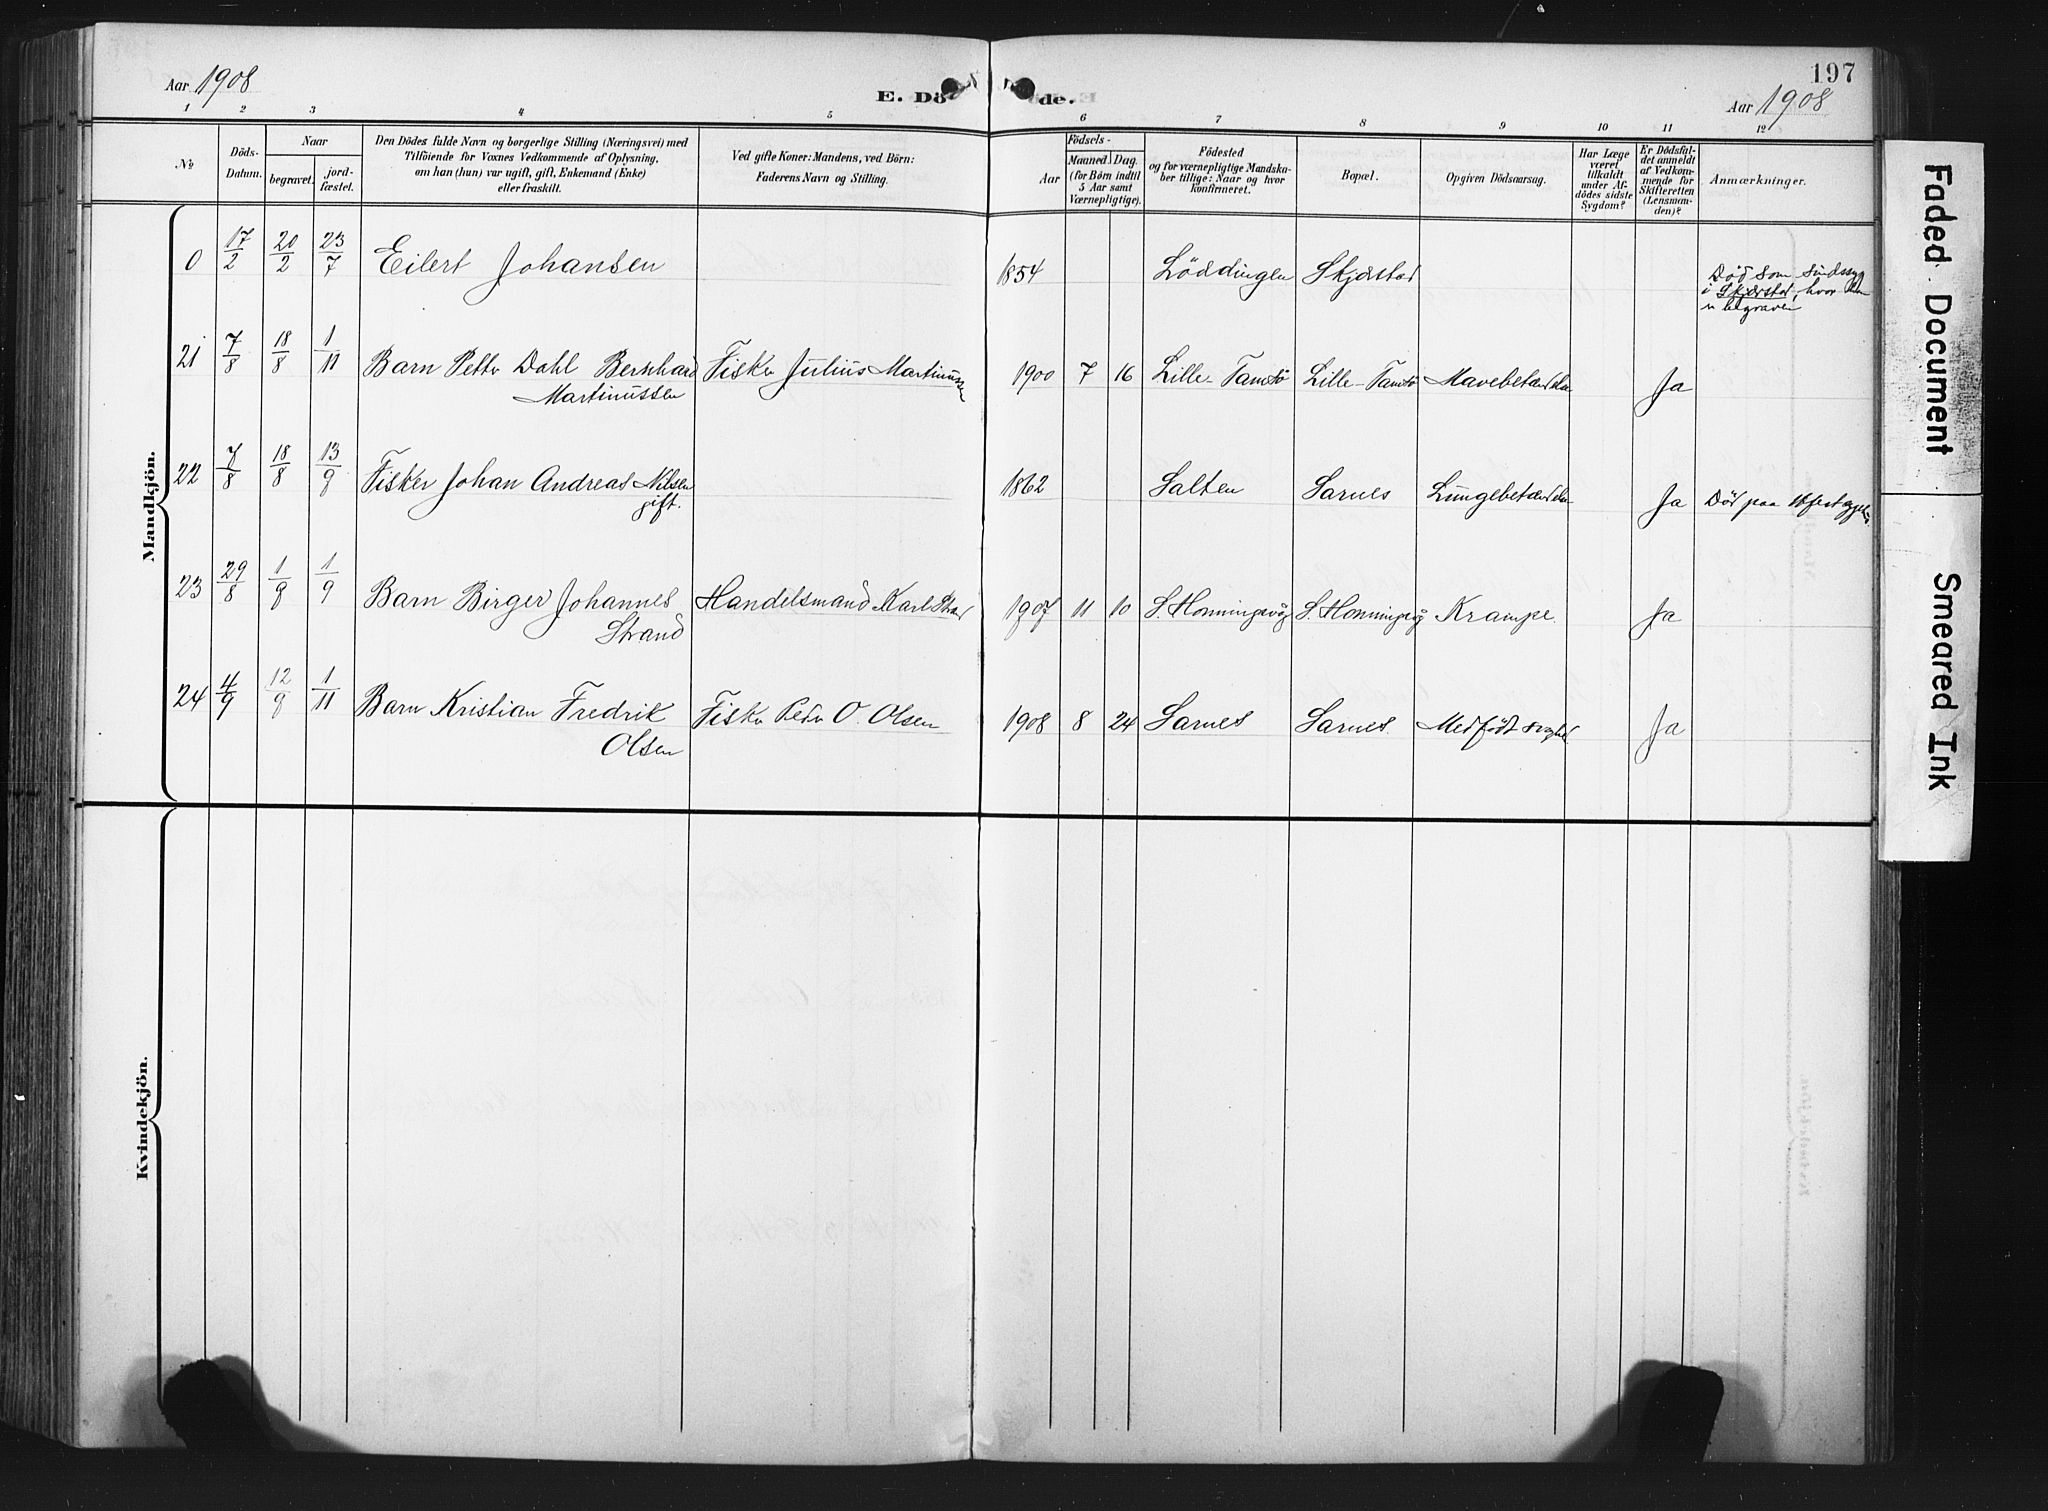 Aar 1908
E. Dö de.
197
Aar 1908
1 2 3 4 5 6 7 8 9 10 11 12
No
Döds-
Datum.
Naar
begravet.
jord-
fæstet.
Den Dödes fulde Navn og borgerlige Stilling (Næringsvei) med
Tilföiende for Voxnes Vedkommende af Oplysning,
om han (hun) var ugift, gift, Enkemand (Enke)
eller fraskilt.
Ved gifte Koner: Mandens, ved Börn:
Faderens Navn og Stilling.
Födsels-
Aar
Maaned. Dag.
(for Börn indtil
5 Aar samt
Værnepligtige).
Födested
og for værnepligtige Mandska-
ber tillige: Naar og hvor
konfirmeret.
Bopæl.
Opgiven Dödsaarsag.
Har Læge
været
tilkaldt
under Af-
dödes sidste
Sygdom?
Er Dödsfal-
det anmeldt
af Vedkom-
mende for
Skifteretten
(Lensman-
den)?
Anmærkninger.
Mandkjön.
0 17/2 20/2 23/7 Eilert Johansen 1854 Löddingen Skjerstad
Död som sindssyg
i Skjerstad, hvor han
begraven
21 7/8 18/8 1/11 Barn Petter Dahl Bernhard Fisker Julius Martinussen 1900 7 16 Lille-Tamsö Lille-Tamsö Mavebetændelse Ja
Martinussen
22 7/8 18/8 13/9 Fisker Johan Andreas Nilsen 1862 Salten Sarnes Lungebetændelse Ja Död paa
gift.
23 29/8 1/9 1/9 Barn Birger Johannes Handelsmand Karl Strand 1907 11 10 S. Honningsvåg S. Honningsvåg Krampe. Ja
Strand
24 4/9 12/9 1/11 Barn Kristian Fredrik Fisker Peder O. Olsen 1908 8 24 Sarnes Sarnes. Medfödt svaghed Ja
Olsen
Kvindekjön.
Faded Document
Smeared Ink